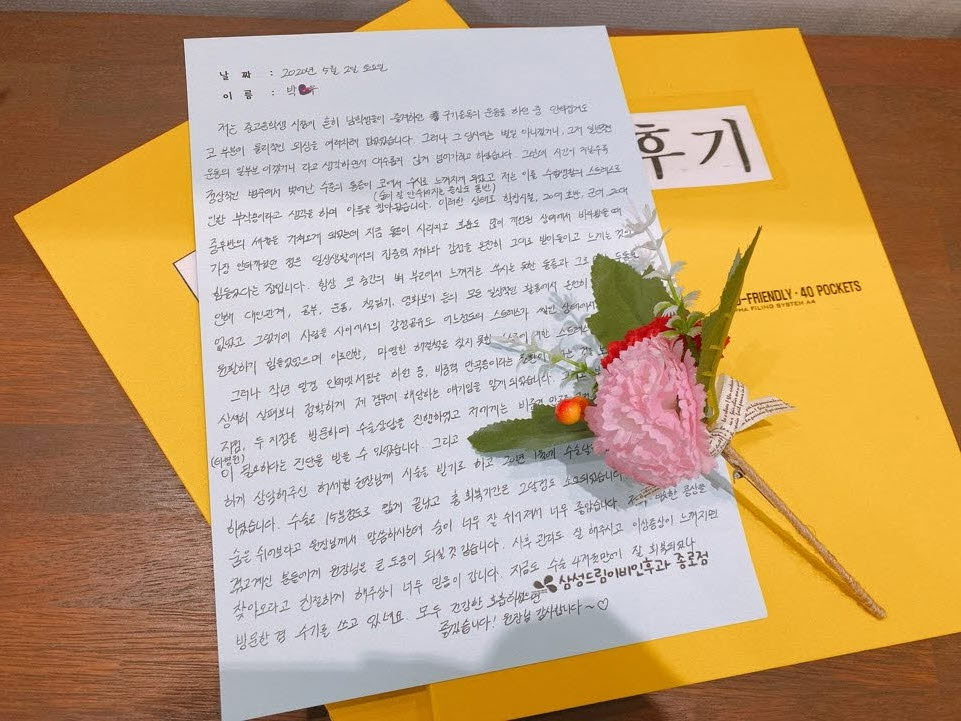 날 짜 : 2020년 5월 2일 토요일
이 름 : 박 우
저는 중고등학생 시절에 흔히 남학생들이 즐겨하는 구기종목의 운동을 하던 중 안타깝게도
코 부분에 물리적인 외상을 여러차례 입었었습니다. 그러나 그 당시에는 별일 아니겠거니, 그저 일반적인
운동의 일부분 이겠거니 라고 생각하면서 대수롭지 않게 넘어가려고 하였습니다. 그런데 시간이 지날수록
정상적인 범주에서 벗어난 수준의 통증이 코에서 수시로 느껴지게 되었고 저는 이를 수험생활의 스트레스로
(숨이 잘 안쉬어지는 증상도 동반)
인한 부작용이라고 생각을 하며 아픔을 참아왔습니다. 이러한 상태로 학창시절, 20대 초반, 군대, 20대
중후반의 세월을 거쳐오게 되었는데 지금 통증이 사라지고 호흡도 많이 개선된 상태에서 바라봤을 때
가장 안타까웠던 점은 일상생활에서의 집중력 저하와 감정을 온전히 그대로 받아들이고 느끼는 것이
힘들었다는 점입니다. 항상 코 중간의 뼈 부근에서 느껴지는 쑤시는 듯한 통증과 그로
인해 대인관계, 공부, 운동, 책읽기, 영화보기 등의 모든 일상적인 활동에서 온전히
없었고 그렇기에 사람들 사이에서의 감정공유도 어느정도의 스트레스가 쌓인 상태에서
원활하기 힘들었었으며 이로인한, 마땅한 해결책을 찾지 못한 스트레스
그러나 작년 말경 인터넷 서핑을 하던 중, 비중격 만곡증이라는 질환이
상세히 살펴보니 정확하게 제 경우에 해당하는 얘기임을 알게 되었습니다.
지점, 두 지점을 방문하여 수술상담을 진행하였고 저에게는 비중격
(타병원)
이 필요하다는 진단을 받을 수 있었습니다. 그리고
하게 상담해주신 허세형 원장님께 시술을 받기로 하고 20년 1월에 수술
하였습니다. 수술은 15분정도로 짧게 끝났고 총 회복기간은 그닥 소요되었습니다
숨을 쉬어보라고 원장님께서 말씀하시는데 숨이 너무 잘 쉬어져서 너무 좋았습니다. 저와 비슷한 증상을
겪고계신 분들에게 원장님은 큰 도움이 되실것 같습니다. 사후 관리도 잘 해주시고 이상증상이 느껴지면
찾아오라고 친절하게 해주셔서 너무 믿음이 갑니다. 지금도 수술 4개월만에 잘 회복되었나
방문한 겸 후기를 쓰고 있네요. 모두 건강한 호흡하셨으면
좋겠습니다! 원장님 감사합니다~♡
삼성드림이비인후과 종로점
후기
O-FRIENDLY · 40 POCKETS
PHA FILING SYSTEM A4